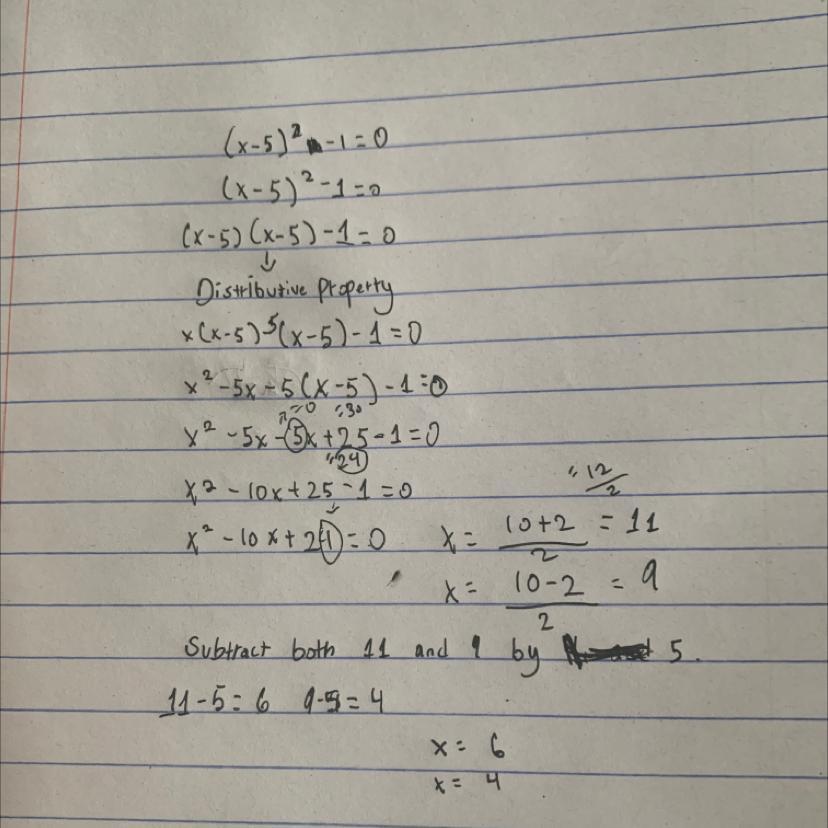 (x-5)² -1=0
(x-5)²-1=0
(x-5)(x-5)-1=0
↓
Distributive Property
x(x-5)5(x-5)-1=0
x²-5x-5(x-5)-1=0
=0 =30
x²-5x-5x+25-1=0
"24
x²-10x+25-1=0
"12/2
x²-10x+2-1=0
x= 10+2/2 = 11
x= 10-2/2 = 9
Subtract both 11 and 9 by 5.
11-5=6 9-5=4
x= 6
x= 4